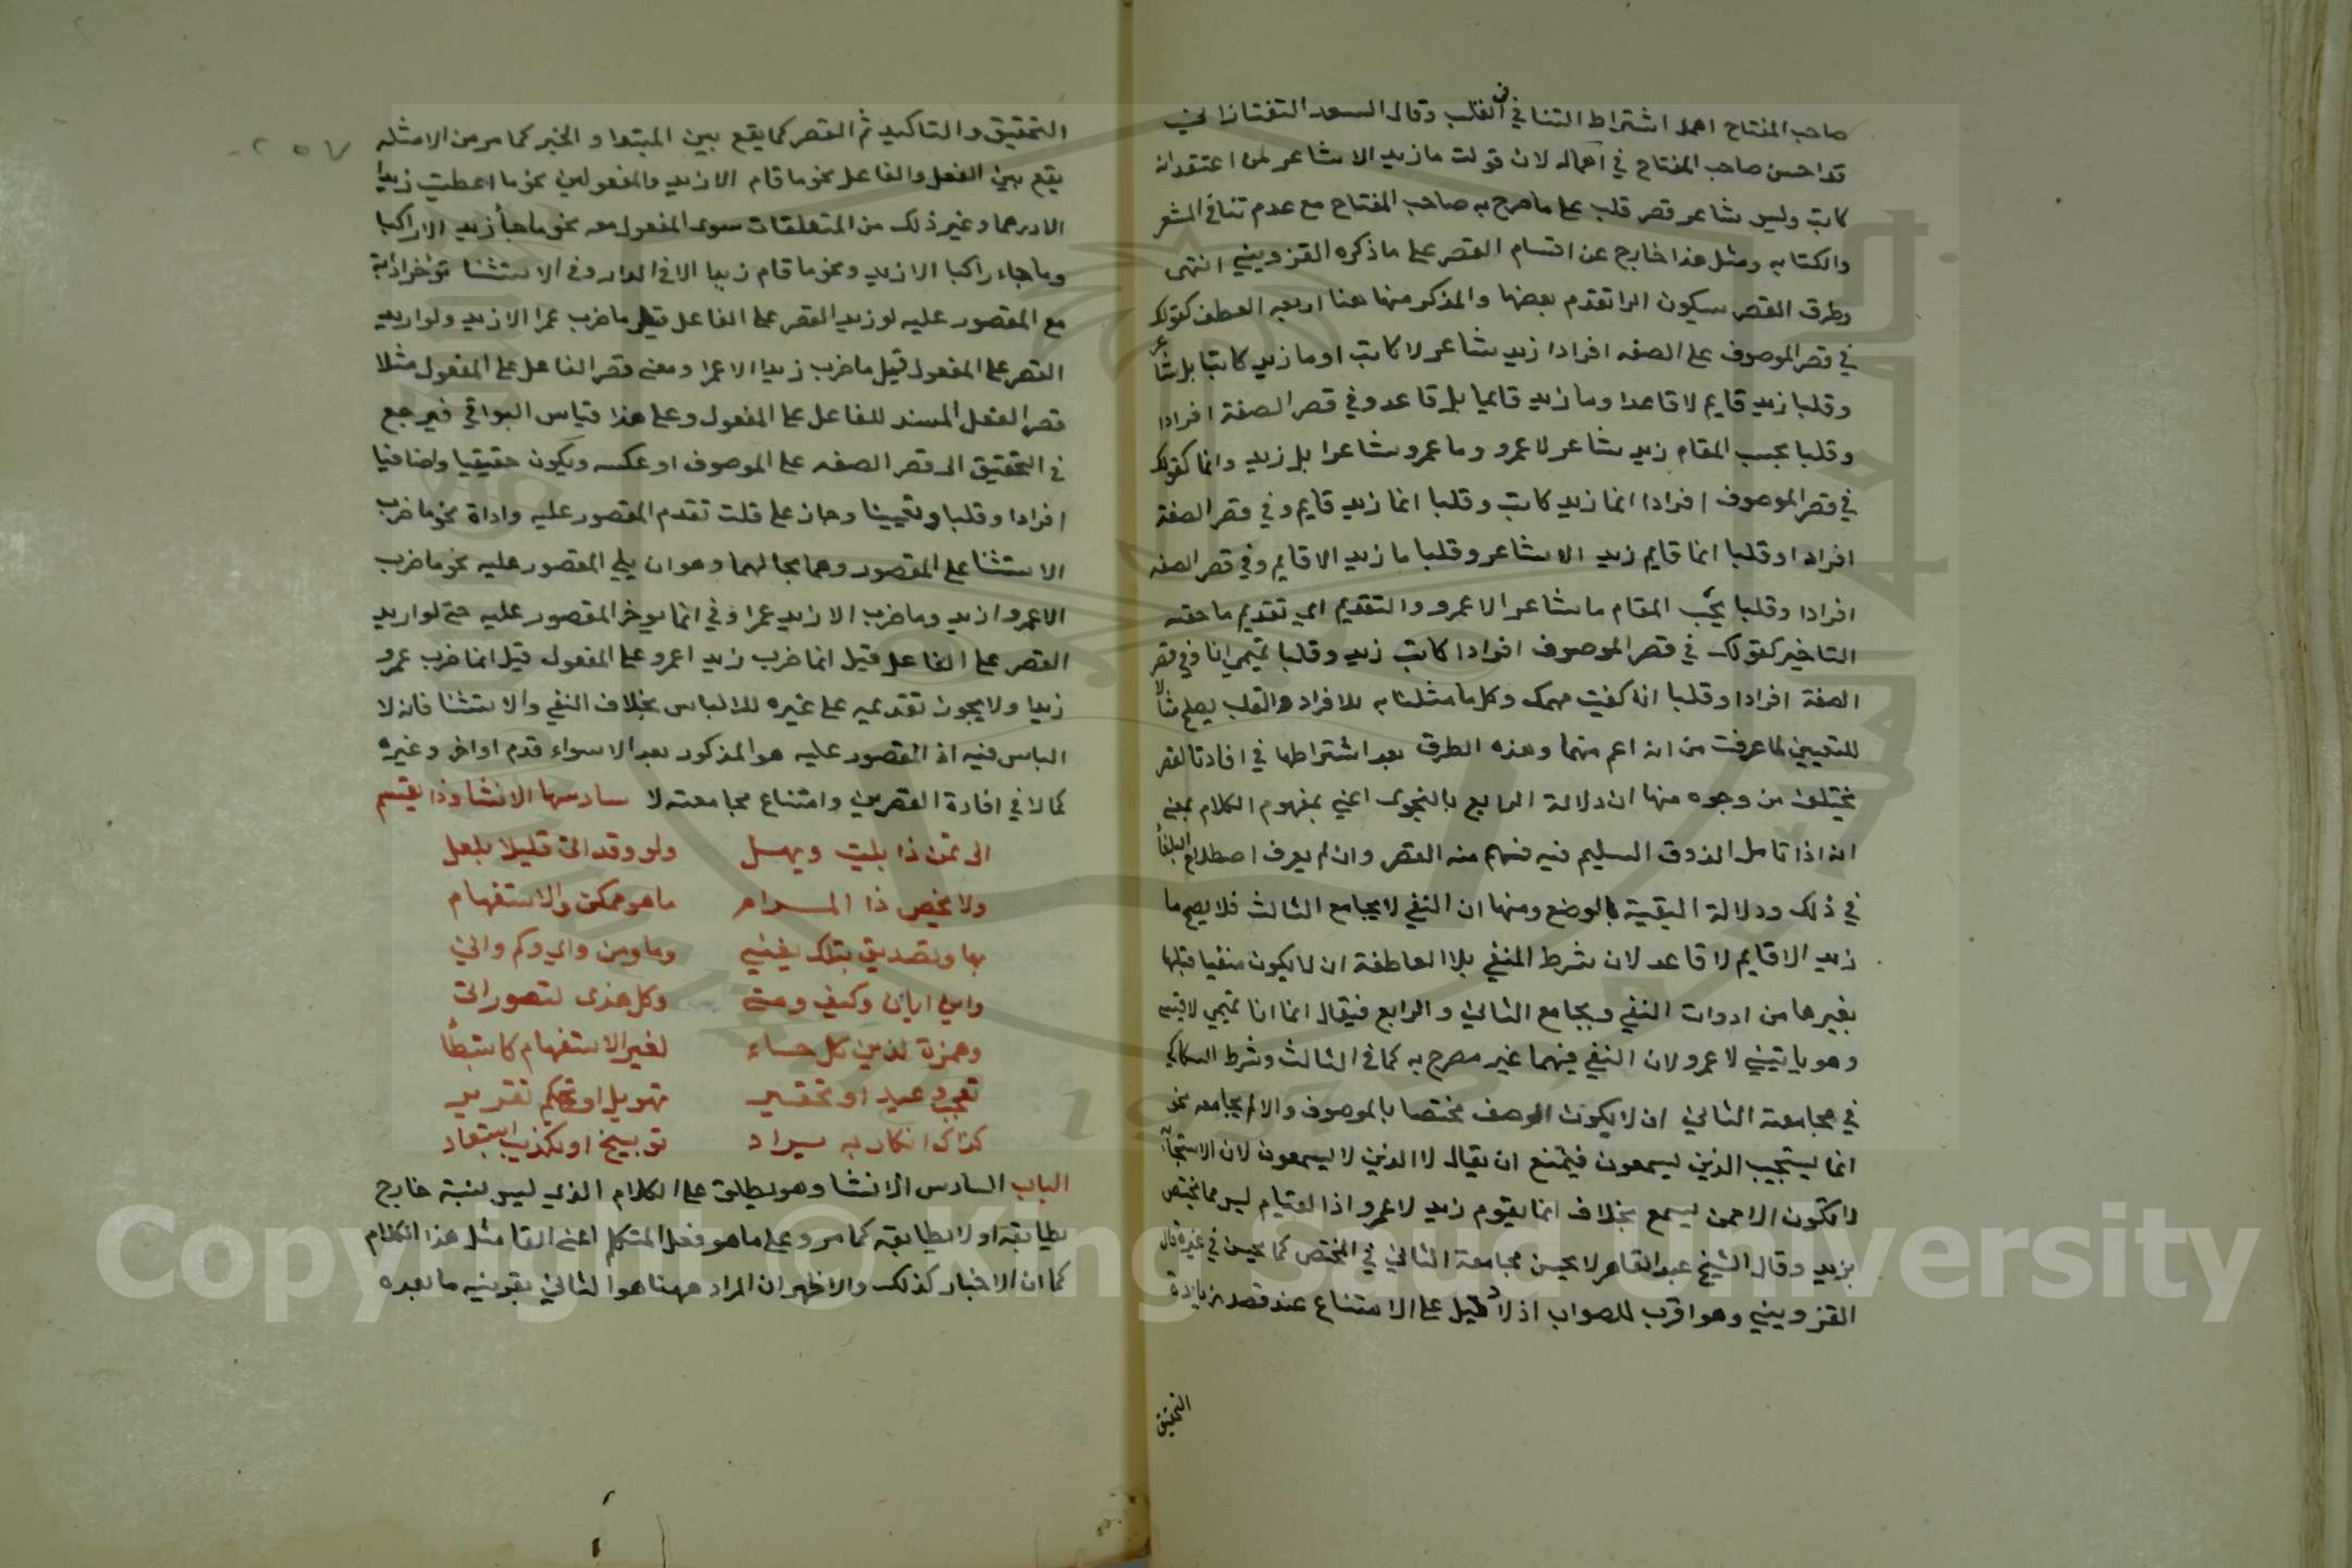 صاحب المفتاح اهمل اشتراط التنافي في القلب وقال السعد التفتازاني
قد احسن صاحب المفتاح في اهماله لان قولت ما زيد الا شاعر لمن اعتقد انه
كاتب وليس شاعر قصر قلب على ما صرح به صاحب المفتاح مع عدم تنافي الشعر
والكتابه ومثل هذا خارج عن اقسام القصر على ما ذكره القزويني انتهى
وطرق القصر سيكون الرا تقدم بعضها والمذكر منها هنا اربعه العطف كقولك
في قصر الموصوف على الصفه افرادا زيد شاعر لا كاتب او ما زيد كاتبا بل شاعر
وقلبا زيد قايم لا قاعدا وما زيد قايما بل قاعد وفي قصر الصفة افرادا
وقلبا بحسب المقام زيد شاعر لا عمرو وما عمرو شاعرا بل زيد وانما كقولك
في قصر الموصوف افرادا انما زيد كاتب وقلبا انما زيد قايم وفي قصر الصفة
افرادا وقلبا انما قايم زيد الا شاعر وقلبا ما زيد الا قايم وفي قصر الصفه
افرادا وقلبا بحسب المقام ما شاعر الا عمرو والتقديم اي تقديم ما حقه
التاخير كقولك في قصر الموصوف افرادا كاتب زيد وقلبا تميمي انا وفي قصر
الصفة افرادا وقلبا انا كفيت مهمك وكل ما مثلنا به للافراد والقلب يصلح مثالا
للتعيين لما عرفت من انه اعم منهما وهذه الطرق بعد اشتراطها في افادتا القصر
تختلف من وجوه منها ان دلالة الرابع بالفحوى اعني بمفهوم الكلام بمعنى
انه اذا تامل الذوق السليم فيه فهم منه القصر وان لم يعرف اصطلاح البلغا
في ذلك ودلالة البقية بالوضع ومنها ان النفي لا يجامع الثالث فلا يصح ما
زيد الا قايم لا قاعد لان شرط المنفي بلا العاطفة ان لا يكون منفيا قبلها
بغيرها من ادوات النفي ويجامع الثاني والرابع فيقال انما انا تميمي لا قيسي
وهو ياتيني لا عمرو لان النفي فيهما غير مصرح به كما في الثالث وشرط السكاكي
في مجامعته الثاني ان لا يكون الوصف مختصا بالموصوف والا لم يجامعه نحو
انما يستجيب الذين يسمعون فيمتنع ان يقال لا الذين لا يسمعون لان الاستجابة
لا تكون الا ممن يسمع بخلاف انما يقوم زيد لا عمرو اذ القيام ليس مما يختص
بزيد وقال الشيخ عبد القاهر لا يحسن مجامعة الثاني في المختص كما يحسن في غيره قال
القزويني وهو اقرب للصواب اذ لا دليل على الامتناع عند قصد زيادة
التحقيق
التحقيق والتاكيد ثم القصر كما يقع بين المبتدا والخبر كما مر من الامثله
يقع بين الفعل والفاعل نحو ما قام الا زيد والمفعولين نحو ما اعطيت زيدا
الا درهما وغير ذلك من المتعلقات سوى المفعول معه نحو ما جأ زيد الا راكبا
وما جاء راكبا الا زيد ونحو ما قام زيد الا في الدار وفي الاستثنا تؤخر اداته
مع المقصور عليه لو زيد القصر على الفاعل قيل ما ضرب عمرا الا زيد ولو اريد
القصر على المفعول قيل ما ضرب زيد الا عمرا ومعنى قصر الفاعل على المفعول مثلا
قصر الفعل المسند للفاعل على المفعول وعلى هذا قياس البواقي فيرجع
في التحقيق الى قصر الصفه على الموصوف او عكسه ويكون حقيقيا واضافيا
افرادا وقلبا وتعيينا وجاز على قلت تقدم المقصور عليه واداة نحو ما ضرب
الاستثنا على المقصور وهما بحالهما وهو ان يلي المقصور عليه نحو ما ضرب
الا عمروا زيد وما ضرب الا زيد عمرا وفي انما يوخر المقصور عليه حتى لو اريد
القصر على الفاعل قيل انما ضرب زيد اعمرو على المفعول قيل انما ضرب عمرو
زيدا ولا يجوز تقديمه على غيره للالباس بخلاف النفي والاستثنا فانه لا
الباس فيه اذ المقصور عليه هو المذكور بعد الا سواء قدم او اخر وغيره
كما لا في افادة القصرين وامتناع مجامعته لا سادسها الانشا وذا يقسم
الى تمن ذا بليت ويهل ولو وقد اتى قليلا بلعل
ولا يخص ذا المرام ما هو ممكن والاستفهام
بها وتصديق بتلك يغني وما ومن واي وكم واني
واين ايان وكيف ومتى وكل هذي لتصور اتى
وهمزة لذين كل جاء لغير الاستفهام كاستبطأ
تعجب وعيد او تحقير تهويل او تهكم تقرير
كذاك انكار به يراد توبيخ او تكذيب استبعاد
الباب السادس الانشا وهو يطلق على الكلام الذي ليس لنسبته خارج
يطابقه او لا يطابقه كما مر وعلى ما هو فعل المتكلم اعني القا مثل هذا الكلام
كما ان الاخبار كذلك والاظهر ان المراد ههنا هو الثاني بقرينه ما بعده
٢٥٧
Copyright © King Saud University